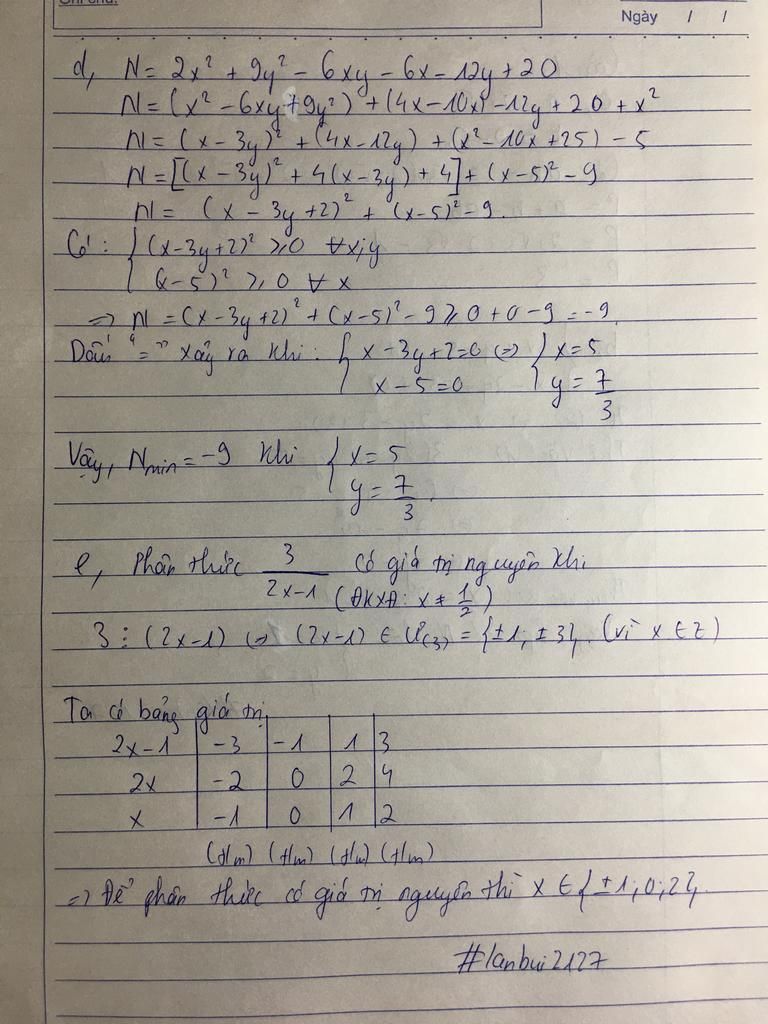 Ghi chú:
Ngày / /
d, N = 2x² + 9y² - 6xy - 6x - 12y + 20
N = (x² - 6xy + 9y²) + (4x - 10x) - 12y + 20 + x²
N = (x - 3y)² + (4x - 12y) + (x² - 10x + 25) - 5
N = [(x - 3y)² + 4(x - 3y) + 4] + (x - 5)² - 9
N = (x - 3y + 2)² + (x - 5)² - 9.
Có: { (x - 3y + 2)² ≥ 0 ∀ x; y
(x - 5)² ≥ 0 ∀ x
=> N = (x - 3y + 2)² + (x - 5)² - 9 ≥ 0 + 0 - 9 = -9.
Dấu "=" xảy ra khi: { x - 3y + 2 = 0 <=> { x = 5
x - 5 = 0 y = 7/3
Vậy, Nmin = -9 khi { x = 5
y = 7/3.
e, Phân thức 3/(2x-1) có giá trị nguyên khi
(ĐKXĐ: x ≠ 1/2)
3 ⋮ (2x-1) <=> (2x-1) ∈ Ư(3) = {±1; ±3}. (vì x ∈ Z)
Ta có bảng giá trị
2x-1 -3 -1 1 3
2x -2 0 2 4
x -1 0 1 2
(t/m) (t/m) (t/m) (t/m)
=> Để phân thức có giá trị nguyên thì x ∈ {±1; 0; 2}.
#lanbui2127